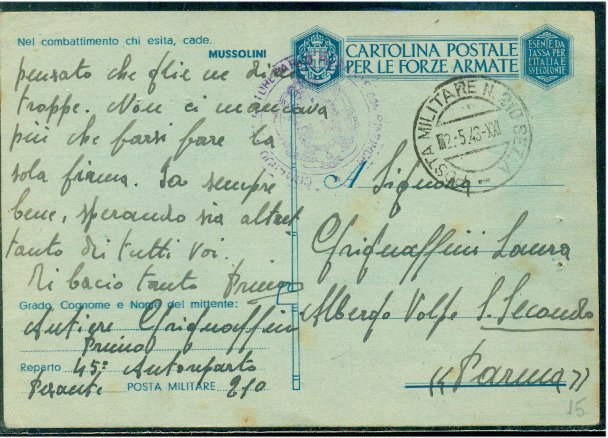 Nel combattimento chi esita, cade.
MUSSOLINI
CARTOLINA POSTALE
PER LE FORZE ARMATE
ESENTE DA
TASSA PER
L'ITALIA E
SUE COLONIE
POSTA MILITARE N. 210 SEZ. A
2-5.43-XXI
pensato che glie ne
troppe. Non ci mancava
più che farsi fare la
sola firma. Io sempre
bene, sperando sia altret
tanto di tutti voi.
Ti bacio tanto Primo
Grado Cognome e Nome del mittente:
Autiere Ghiguaffini
Primo
Reparto 45° Autoreparto
Pesante POSTA MILITARE 210
A Signora
Ghiguaffini Laura
Albergo Volpe S. Secondo
«Parma»
15